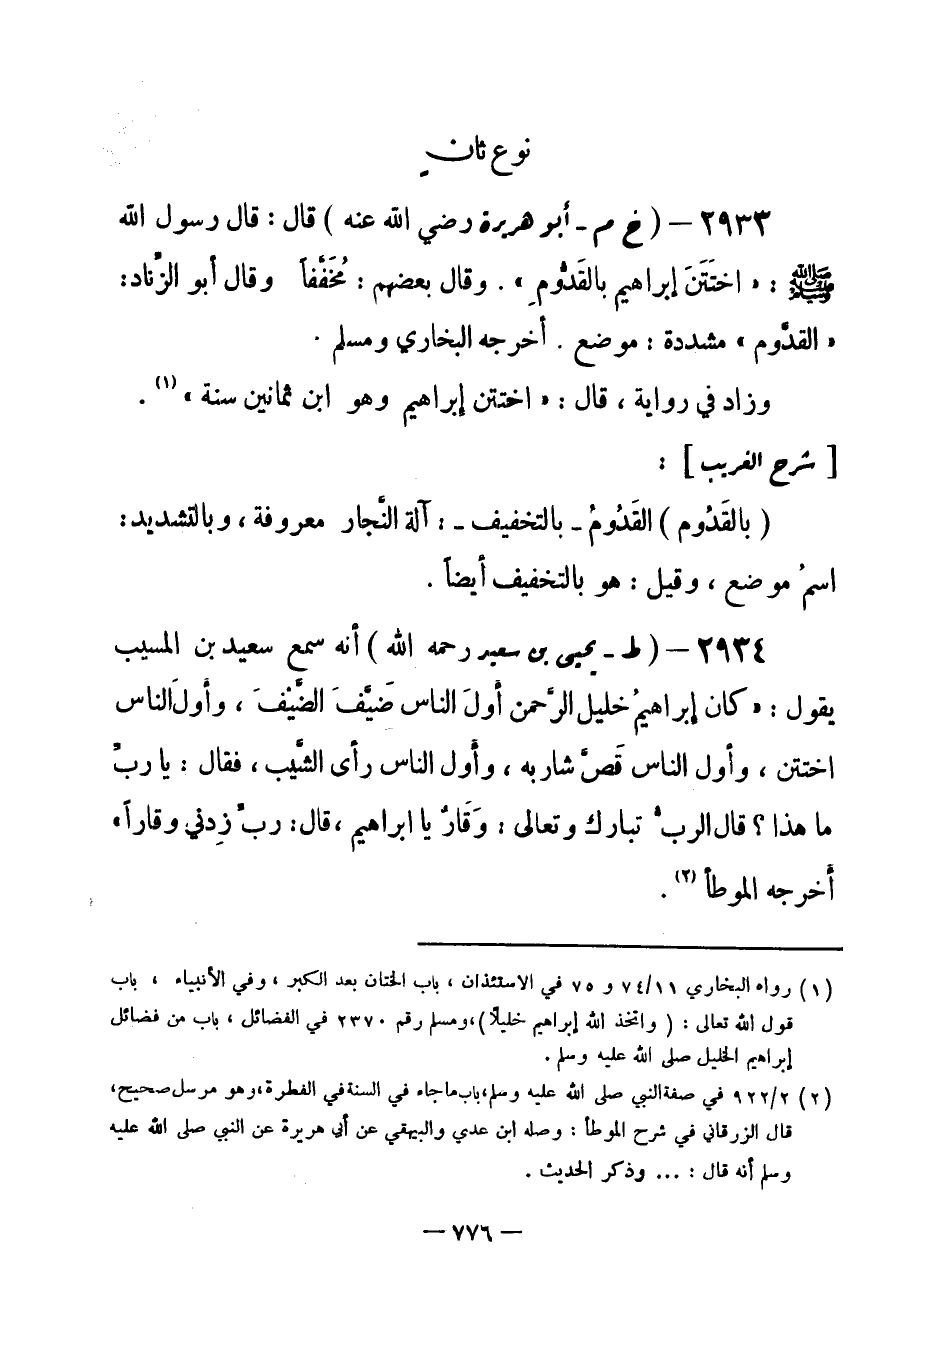 نوع ثان
٢٩٣٣ – ( خ م - أبو هريرة رضي الله عنه ) قال : قال رسول الله
ﷺ : « اختَتَنَ إبراهيم بالقَدُّومِ » . وقال بعضهم : مُخَفَّفاً وقال أبو الزِّناد :
« القدُّوم » مشددة : موضع . أخرجه البخاري ومسلم .
وزاد في رواية ، قال : « اختتن إبراهيم وهو ابن ثمانين سنة » (١) .
[ شرح الغريب ] :
( بالقَدُوم ) القَدُومُ - بالتخفيف - : آلة النَّجار معروفة ، وبالتشديد :
اسمُ موضع ، وقيل : هو بالتخفيف أيضاً .
٢٩٣٤ – ( ط - يحيى بن سعيد رحمه الله ) أنه سمع سعيد بن المسيب
يقول : « كان إبراهيمُ خليل الرَّحمن أولَ الناس ضَيَّفَ الضَّيْفَ ، وأولَ الناس
اختتن ، وأول الناس قَصَّ شاربه ، وأول الناس رأى الشَّيْب ، فقال : يا ربِّ
ما هذا ؟ قال الربُّ تبارك وتعالى : وَقَارٌ يا ابراهيم ، قال : ربِّ زِدني وقاراً »
أخرجه الموطأ (٢) .
(١) رواه البخاري ٧٤/١١ و ٧٥ في الاستئذان ، باب الختان بعد الكبر ، وفي الأنبياء ، باب
قول الله تعالى : ( واتخذ الله إبراهيم خليلاً ) ، ومسلم رقم ٢٣٧٠ في الفضائل ، باب من فضائل
إبراهيم الخليل صلى الله عليه وسلم .
(٢) ٩٢٢/٢ في صفة النبي صلى الله عليه وسلم ، باب ماجاء في السنة في الفطرة ، وهو مرسل صحيح ،
قال الزرقاني في شرح الموطأ : وصله ابن عدي والبيهقي عن أبي هريرة عن النبي صلى الله عليه
وسلم أنه قال : ... وذكر الحديث .
– ٧٧٦ –